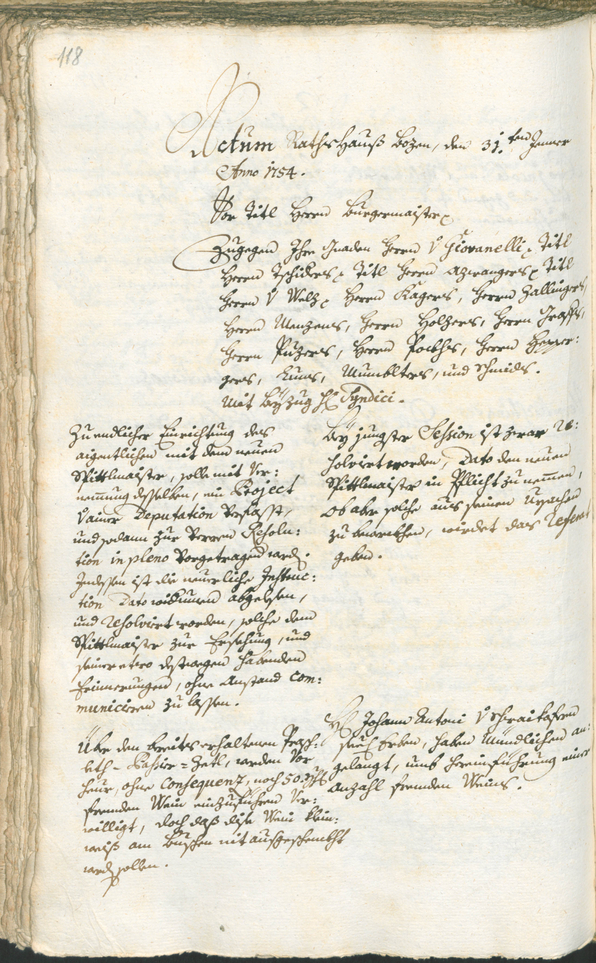 118
Actum Rathshauß Bozen, den 31.ten Jener
Anno 1754.
Vor Titl Herrn Burgermaister
Zugegen Ihr Gnaden Herrn V Giovanelli, Titl
Herrn Tschiders, Titl Herrn Azwangers, Titl
Herrn V Welz, Herrn Kagers, Herrn Zallingers,
Herrn Menzens, Herrn Holzers, Herrn Graffs,
Herrn Puzers, Herrn Pockhs, Herrn
gers, Kuns, Mumblters, und Schmids.
Mit Beyzug H: Syndici.
Zu endlicher Einrichtung des
aigentlichen mit dem neuen
Spittlmaister, solle mit Ver:
nemung desselben, ein Project
V ainer Deputation Verfasst,
und sodann zur Resolu:
tion in pleno Vorgetragen werd.
Indessen ist die neuerliche Instruc:
tion Dato widumen abgelesen,
und resolvirt worden, solche dem
Spittlmaister zur Ersehung, und
seiner etwo destwegen habenden
Erinnerungen, ohne Anstand com:
municiren zu lassen.
Bey jüngster Session ist zwar re:
solvirt worden, Dato den neuen
Spittlmaister in Pflicht zu nemmen,
ob aber solche aus seinen Ursachen
zu bewerkhen, wirdet das
geben.
Über den bereits erhaltenen
Passier-Zetl, werden Vor
heur, ohne Consequenz, noch 50
fremden Wein einzuführen Ver:
willigt, doch daß dise Wein khei:
weiß am Buschen nit ausgeschenkht
werd sollen.
H: Johann Antoni V
seel: Erben, haben mündlichen an:
gelangt, umb Hereinführung einer
Anzahl fremden Weins.